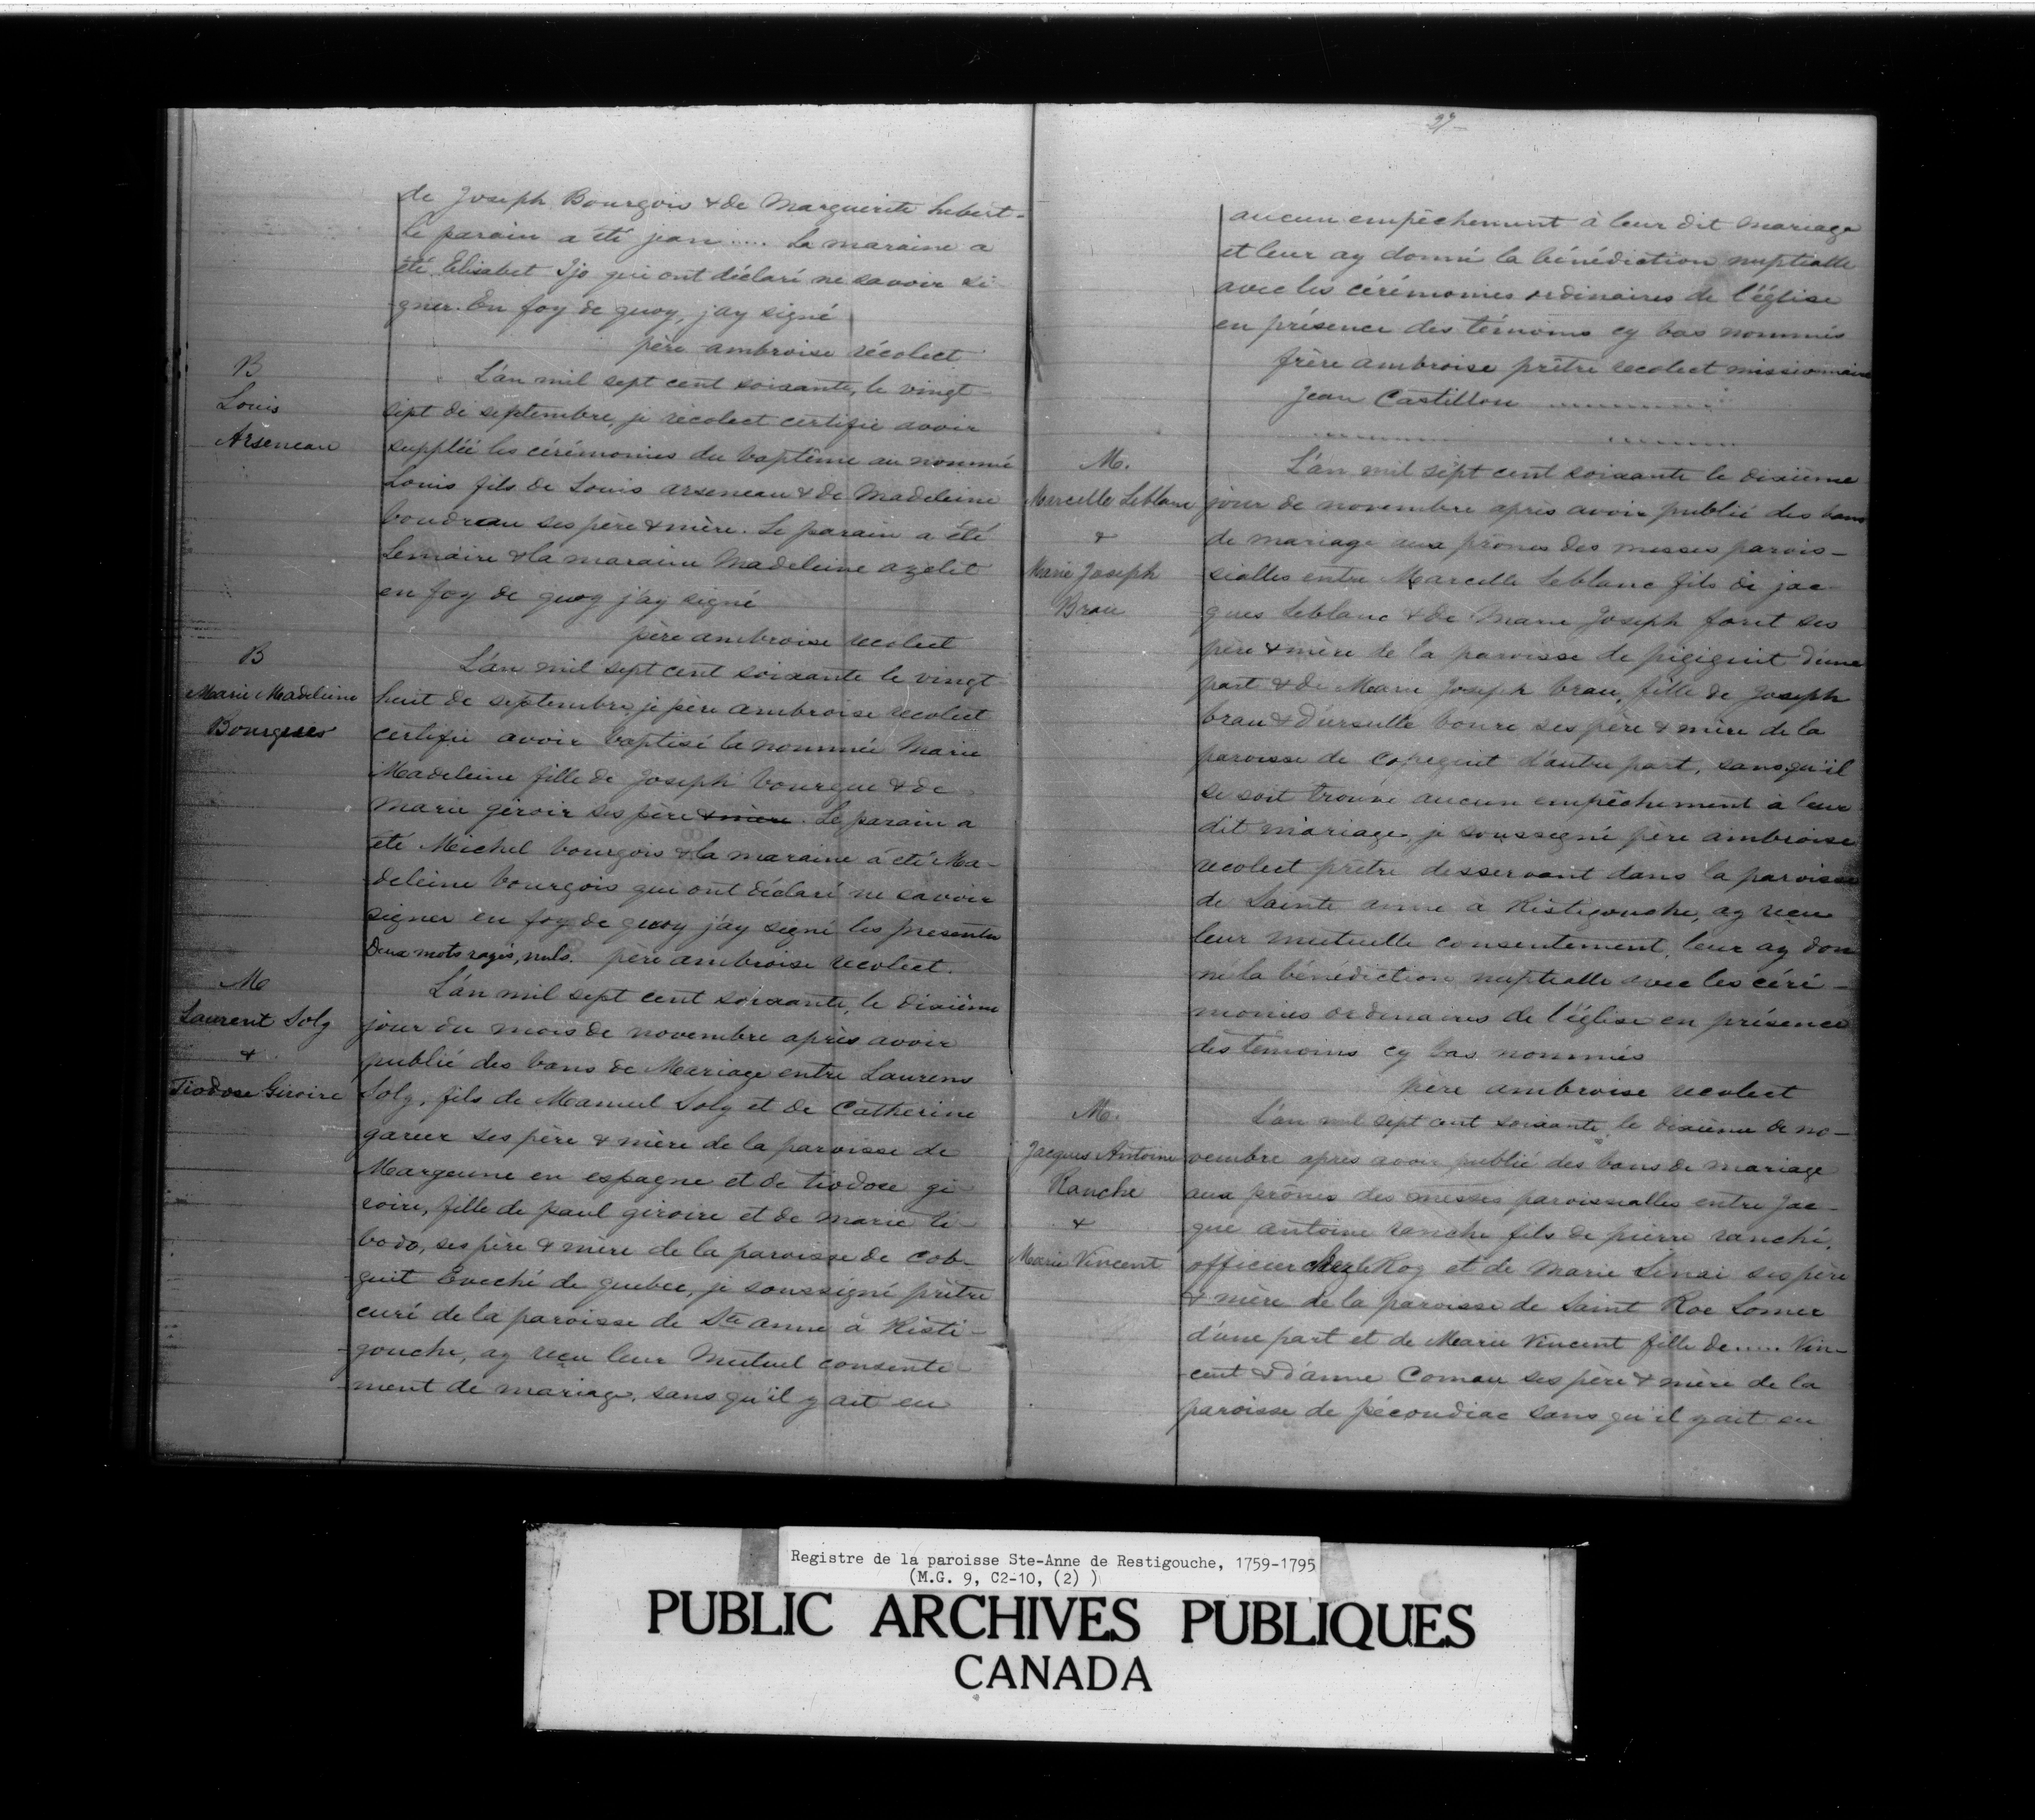 de Joseph Bourgois & de Marguerite hebert.
Le parain a été jean ..... La maraine a
été Elisabet Ijo qui ont déclaré ne savoir si
gner. En foy de quoy, j'ay signé
père ambroise récolect
B
Louis
Arseneau
L'an mil sept cent soixante, le vingt
sept de septembre, je récolect certifie avoir
suppléé les cérémonies du baptême au nommé
Louis fils de Louis arseneau & de Madeleine
boudreau ses père & mère. Le parain a été
Lemaire & la maraine Madeleine azelit
en foy de quoy j'ay signé
père ambroise recolect
B
Marie Madeleine
Bourgeois
L'an mil sept cent soixante le vingt
huit de septembre, je père ambroise recolect
certifie avoir baptisé la nommée Marie
Madeleine fille de Joseph bourgue & de
Marie géroir ses père & mère. Le parain a
été Michel bourgois & la maraine a été Ma-
deleine bourgois qui ont déclaré ne savoir
signer en foy de quoy j'ay signé les presentes
Deux mots rayés, nuls. père ambroise recolect.
M
Laurent Soly
&
Tiodose Giroire
L'an mil sept cent soixante, le dixième
jour du mois de novembre après avoir
publié des bans de Mariage entre Laurens
Soly, fils de Manuel Soly et de Catherine
garcer ses père & mère de la paroisse de
Margeune en espagne et de tiodose gi
roire, fille de paul giroire et de marie ti
bodo, ses père & mère de la paroisse de Cob-
guit Eveché de quebec, je soussigné prêtre
curé de la paroisse de Ste anne à Risti-
gouche, ay reçu leur Mutuel consente
ment de mariage, sans qu'il y ait eu
27
aucun empêchement à leur dit mariage
et leur ay donné la bénédiction nuptialle
avec les cérémonies ordinaires de l'église
en présence des témoins cy bas nommés
frère ambroise prêtre recolect missionnaire
Jean Castillou ..............
M.
Marcelle Leblanc
&
Marie Joseph
Brau
L'an mil sept cent soixante le dixième
jour de novembre après avoir publié des bans
de mariage aux prônes des messes parois-
sialles entre Marcelle Leblanc fils de jac-
ques Leblanc & de Marie Joseph foret ses
père & mère de la paroisse de pigiguit d'une
part & de Marie Joseph brau, fille de Joseph
brau & d'ursulle boure ses père & mère de la
paroisse de Copeguit d'autre part, sans qu'il
se soit trouvé aucun empêchement à leur
dit mariage, je soussigné père ambroise
recolect prêtre desservant dans la paroisse
de Sainte anne a Ristigouche, ay reçu
leur mutuelle consentement, leur ay don
né la bénédiction nuptialle avec les céré-
monies ordinaires de l'église en présence
des témoins cy bas nommés
père ambroise recolect
M.
Jacques Antoine
Ranche
&
Marie Vincent
L'an mil sept cent soixante, le dixième de no-
vembre après avoir publié des bans de mariage
aux prônes des messes paroissialles entre Jac-
que antoine ranche fils de pierre ranché,
officier chez le Roy et de Marie Sinai ses père
& mère de la paroisse de Saint Roc Lomer
d'une part et de Marie Vincent fille de ..... Vin-
cent & d'anne Comau ses père & mère de la
paroisse de pécoudiac sans qu'il y ait eu
Registre de la paroisse Ste-Anne de Restigouche, 1759-1795
(M.G. 9, C2-10, (2) )
PUBLIC ARCHIVES PUBLIQUES
CANADA